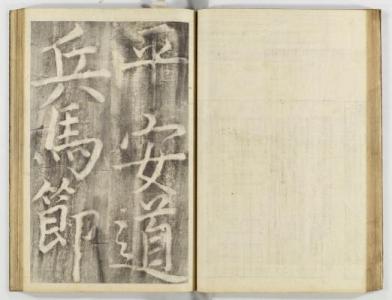 平安道
兵馬節